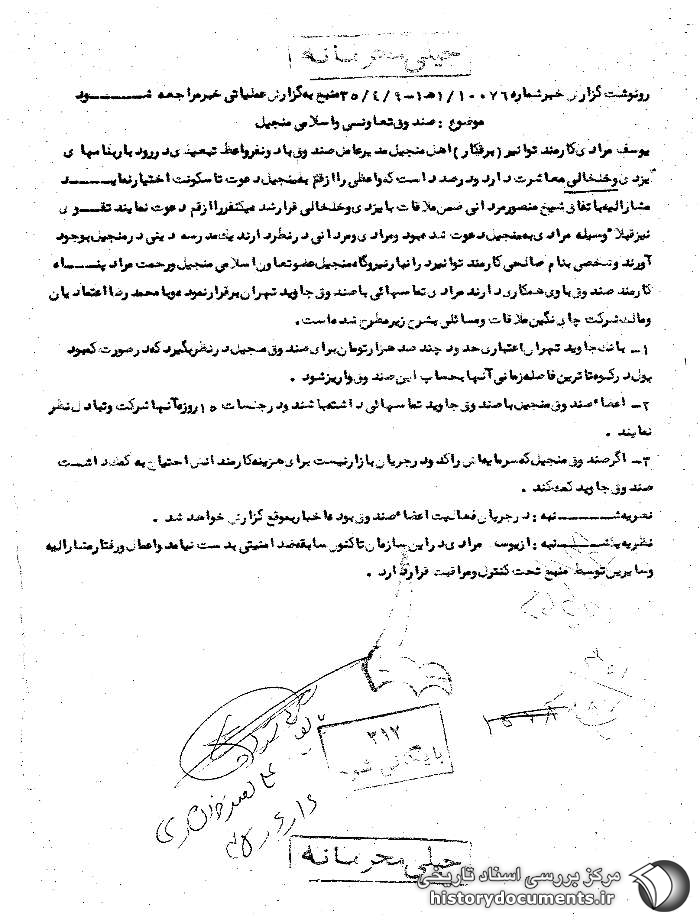 خیلی محرمانه
رونوشت گزارش خبر شماره ۱۰۰۷۶/۱ه‍۱-۳۵/۴/۹ منبع به گزارش عملیاتی خبر مراجعه شود
موضوع : صندوق تعاونی و اسلامی منجیل
یوسف مرادی کارمند توانیر (برقکار) اهل منجیل مدیرعامل صندوق با دو نفر واعظ تبعیدی در رودبار بنامهای
یزدی و خلخالی معاشرت دارد و درصدد است که واعظی را از قم به منجیل دعوت تا سکونت اختیار نماید
مشارالیه با تفاق شیخ منصور مردانی ضمن ملاقات با یزدی و خلخالی قرار شد میکنفر را از قم دعوت نمایند تقوی
نیز قبلا" وسیله مرادی به منجیل دعوت شده بود و مرادی و مردانی در نظر دارند یک مدرسه دینی در منجیل بوجود
آورند و شخصی بنام صالحی کارمند توانیر در انبار نیروگاه منجیل عضو تعاون اسلامی منجیل و رحمت مراد پناه
کارمند صندوق با وی همکاری دارند مرادی تماسهائی با صندوق جاوید تهران برقرار نموده و با محمد رضا اعتمادیان
و مالک شرکت چای نگین ملاقات و مسائلی بشرح زیر مطرح شده است.
۱- بانک جاوید تهران اعتباری حدود چند صد هزار تومان برای صندوق منجیل در نظر بگیرد که در صورت کمبود
پول در کوتاه ترین فاصله زمانی آنها بحساب این صندوق واریز شود .
۲- اعضاء صندوق منجیل با صندوق جاوید تماسهائی داشته باشند و در جلسات ۱۵ روزه آنها شرکت و تبادل نظر
نمایند .
۳- اگر صندوق منجیل که سرمایه‌اش راکد و در جریان بازار نیست برای هزینه کارمندانش احتیاج به کمک داشت
صندوق جاوید کمک کند .
نظریه شنبه : در جریان فعالیت اعضاء صندوق بوده اخبار بموقع گزارش خواهد شد .
نظریه یکشنبه : از یوسف مرادی در این سازمان تاکنون سابقه ضد امنیتی بدست نیامده و اعمال و رفتار مشارالیه
و سایرین توسط منبع تحت کنترل و مراقبت قرار دارد .
۳۱۷
بایگانی شود
خیلی محرمانه
مرکز بررسی اسناد تاریخی
historydocuments.ir